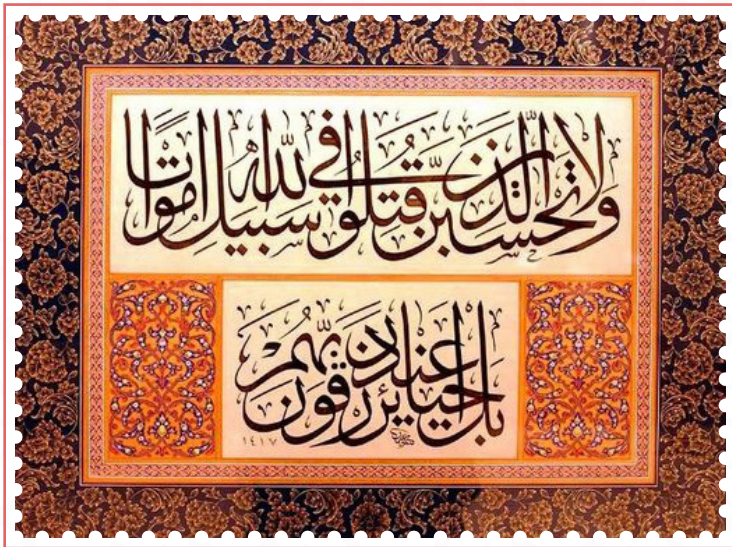 وَلَا تَحْسَبَنَّ الَّذِينَ قُتِلُوا فِي سَبِيلِ اللَّهِ أَمْوَاتًا
بَلْ أَحْيَاءٌ عِنْدَ رَبِّهِمْ يُرْزَقُونَ
١٤١٧